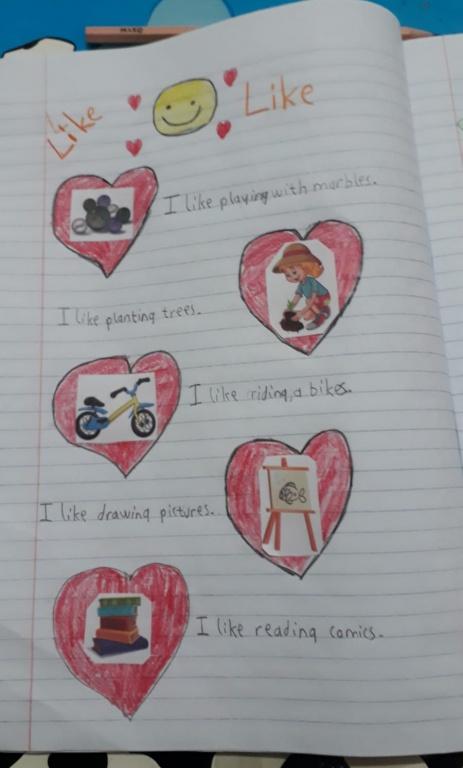 Like Like
I like playing with marbles.
I like planting trees.
I like riding a bikes.
I like drawing pictures.
I like reading comics.